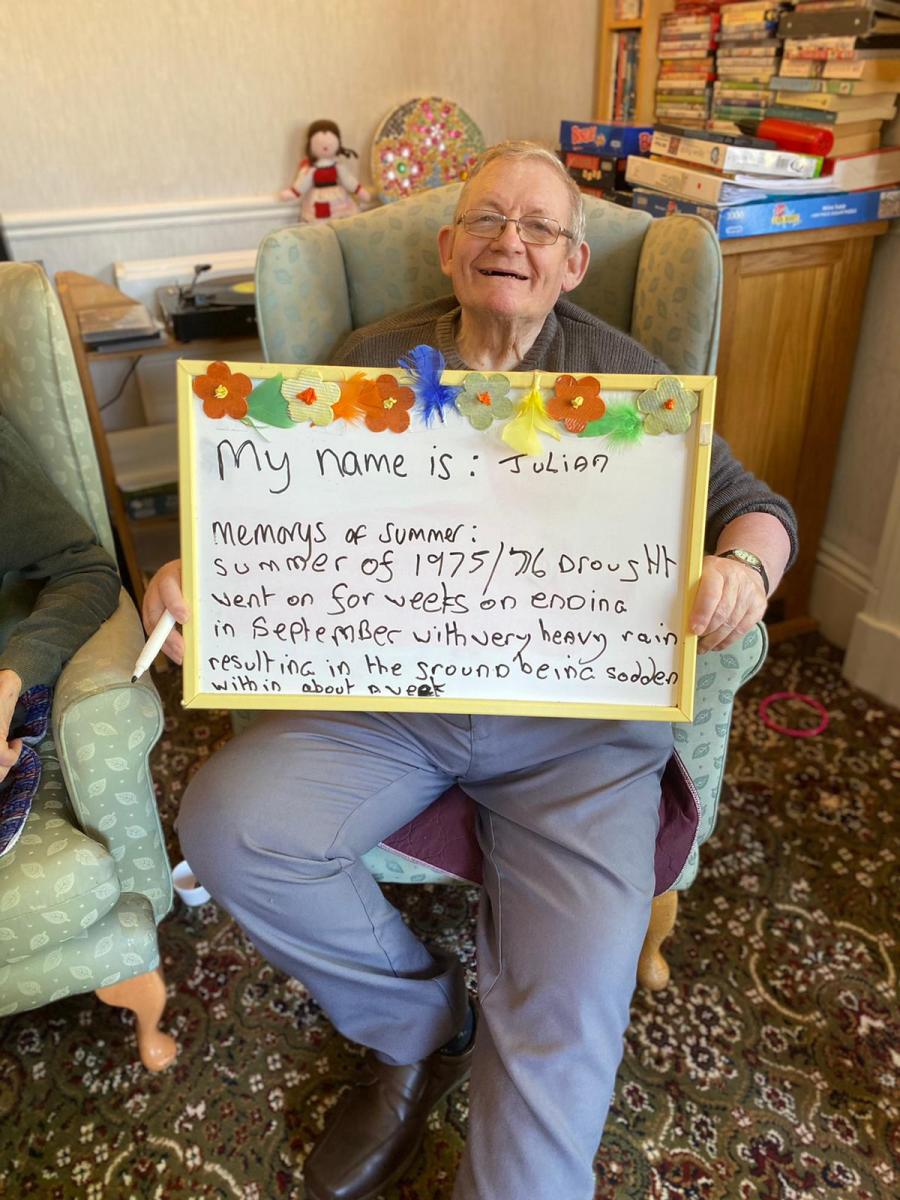 My name is: JULIAN
Memorys of summer:
summer of 1975/76 Drought
went on for weeks on ending
in September with very heavy rain
resulting in the ground being sodden
within about a week